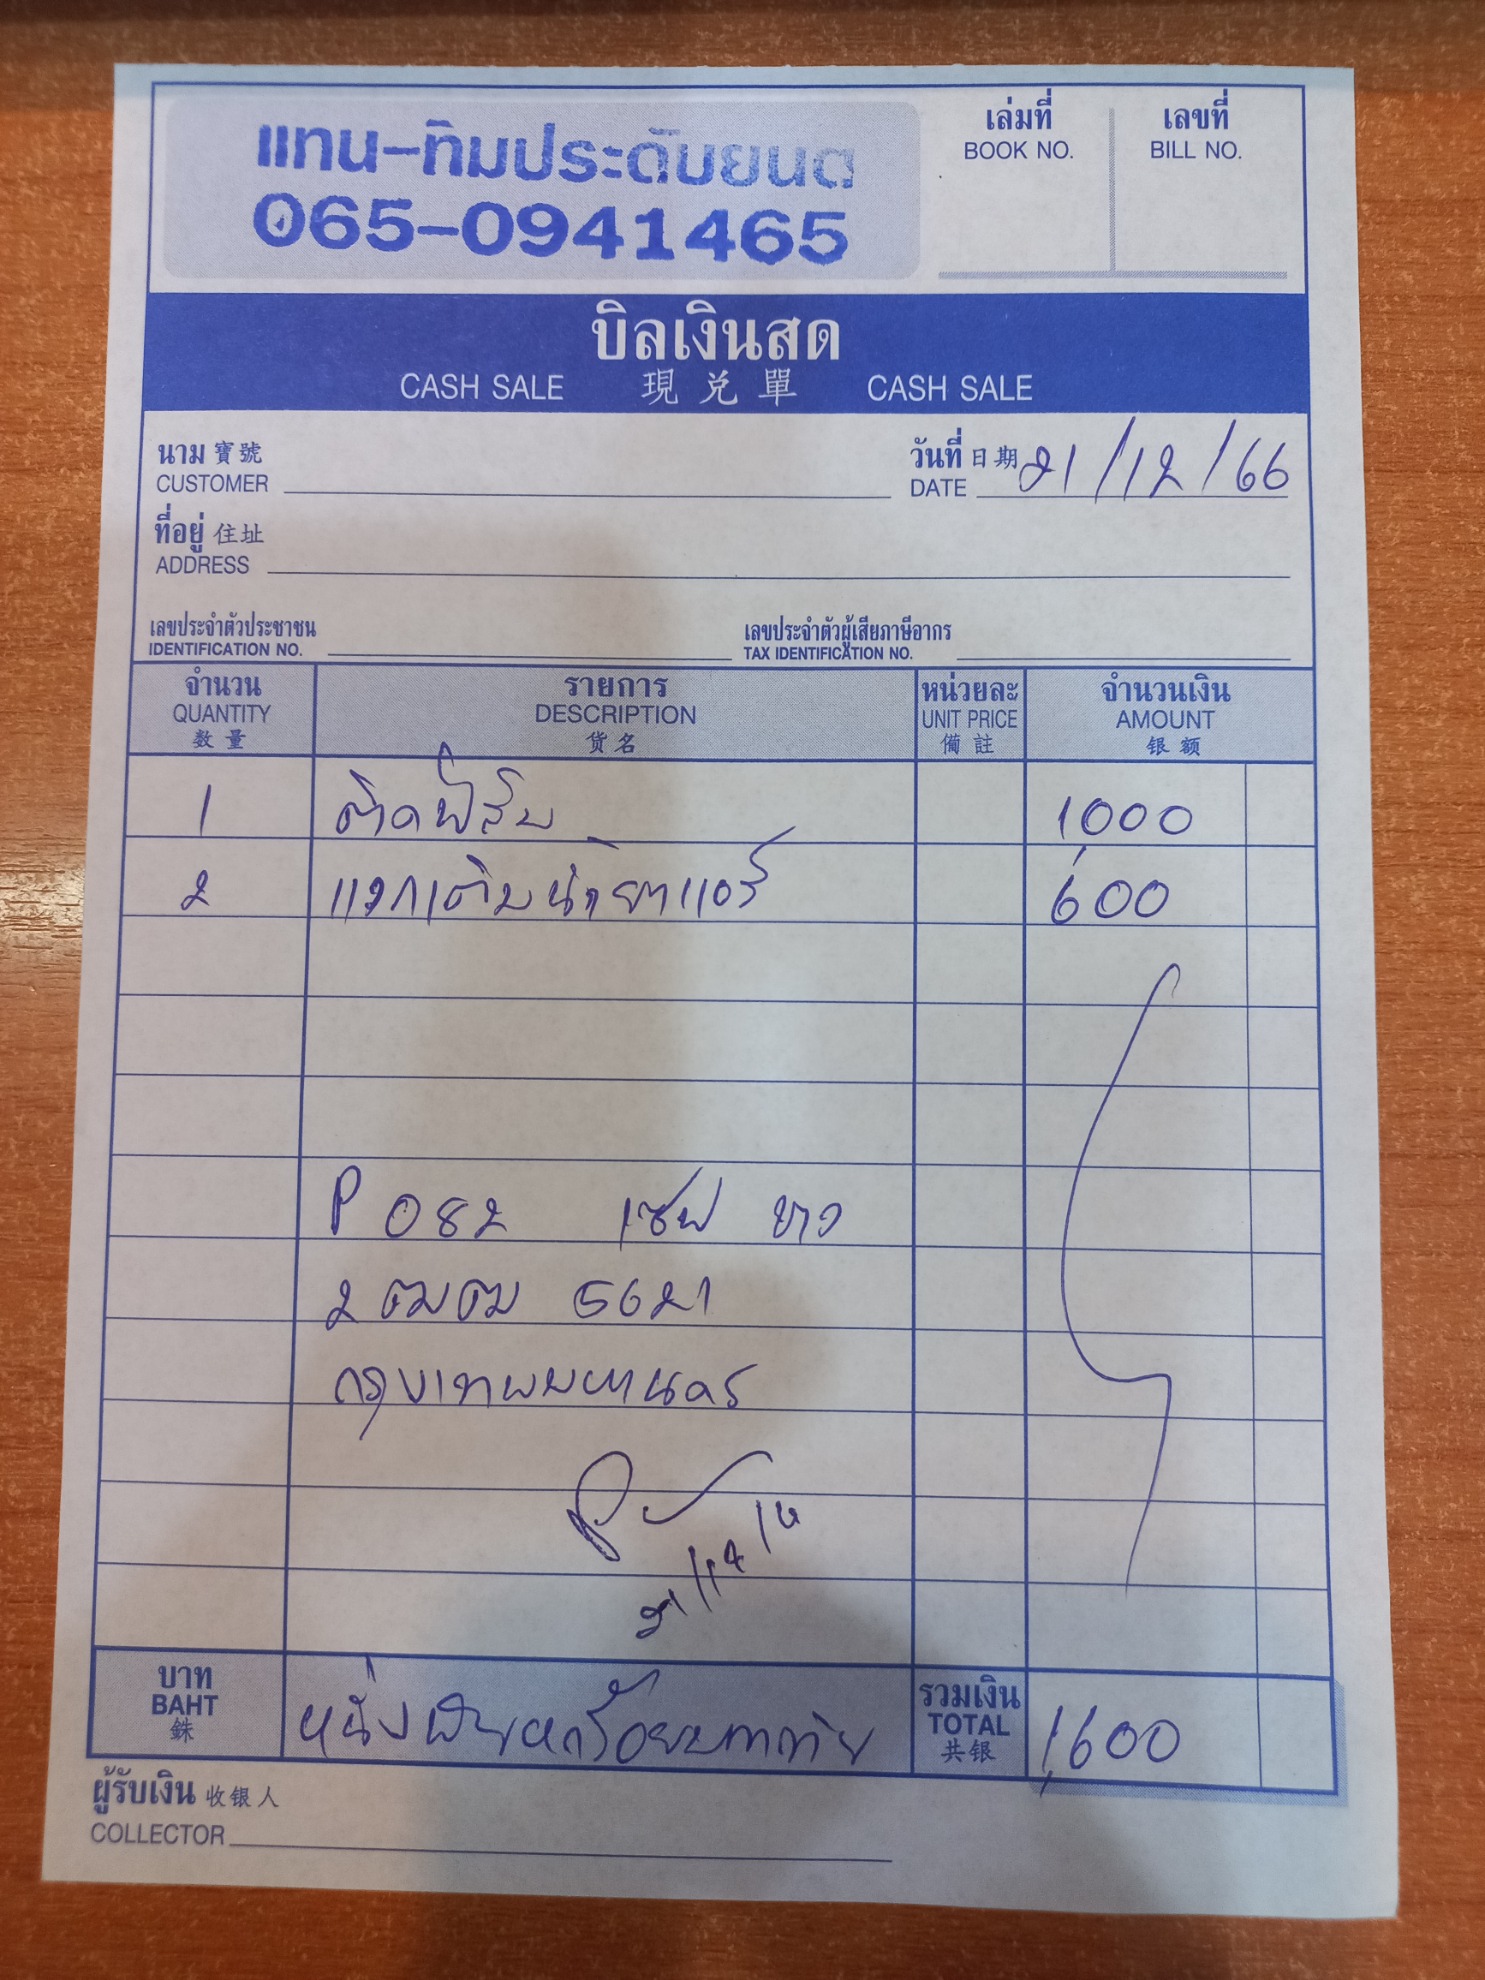 แทน-ทิมประดับยนต
065-0941465
เล่มที่ เลขที่
BOOK NO. BILL NO.
บิลเงินสด
CASH SALE 現兑單 CASH SALE
นาม 寶號 วันที่ 日期 21/12/66
CUSTOMER DATE
ที่อยู่ 住址
ADDRESS
เลขประจำตัวประชาชน เลขประจำตัวผู้เสียภาษีอากร
IDENTIFICATION NO. TAX IDENTIFICATION NO.
จำนวน รายการ หน่วยละ จำนวนเงิน
QUANTITY DESCRIPTION UNIT PRICE AMOUNT
数量 货名 備註 银额
1 ติดฟิล์ม 1000
2 เติมน้ำยาแอร์ 600
P 082 เชฟ ขาว
2 ฒฒ 5621
กรุงเทพมหานคร
บาท รวมเงิน
BAHT หนึ่งพันหกร้อยบาทถ้วน TOTAL 1,600
銖 共银
ผู้รับเงิน 收银人
COLLECTOR